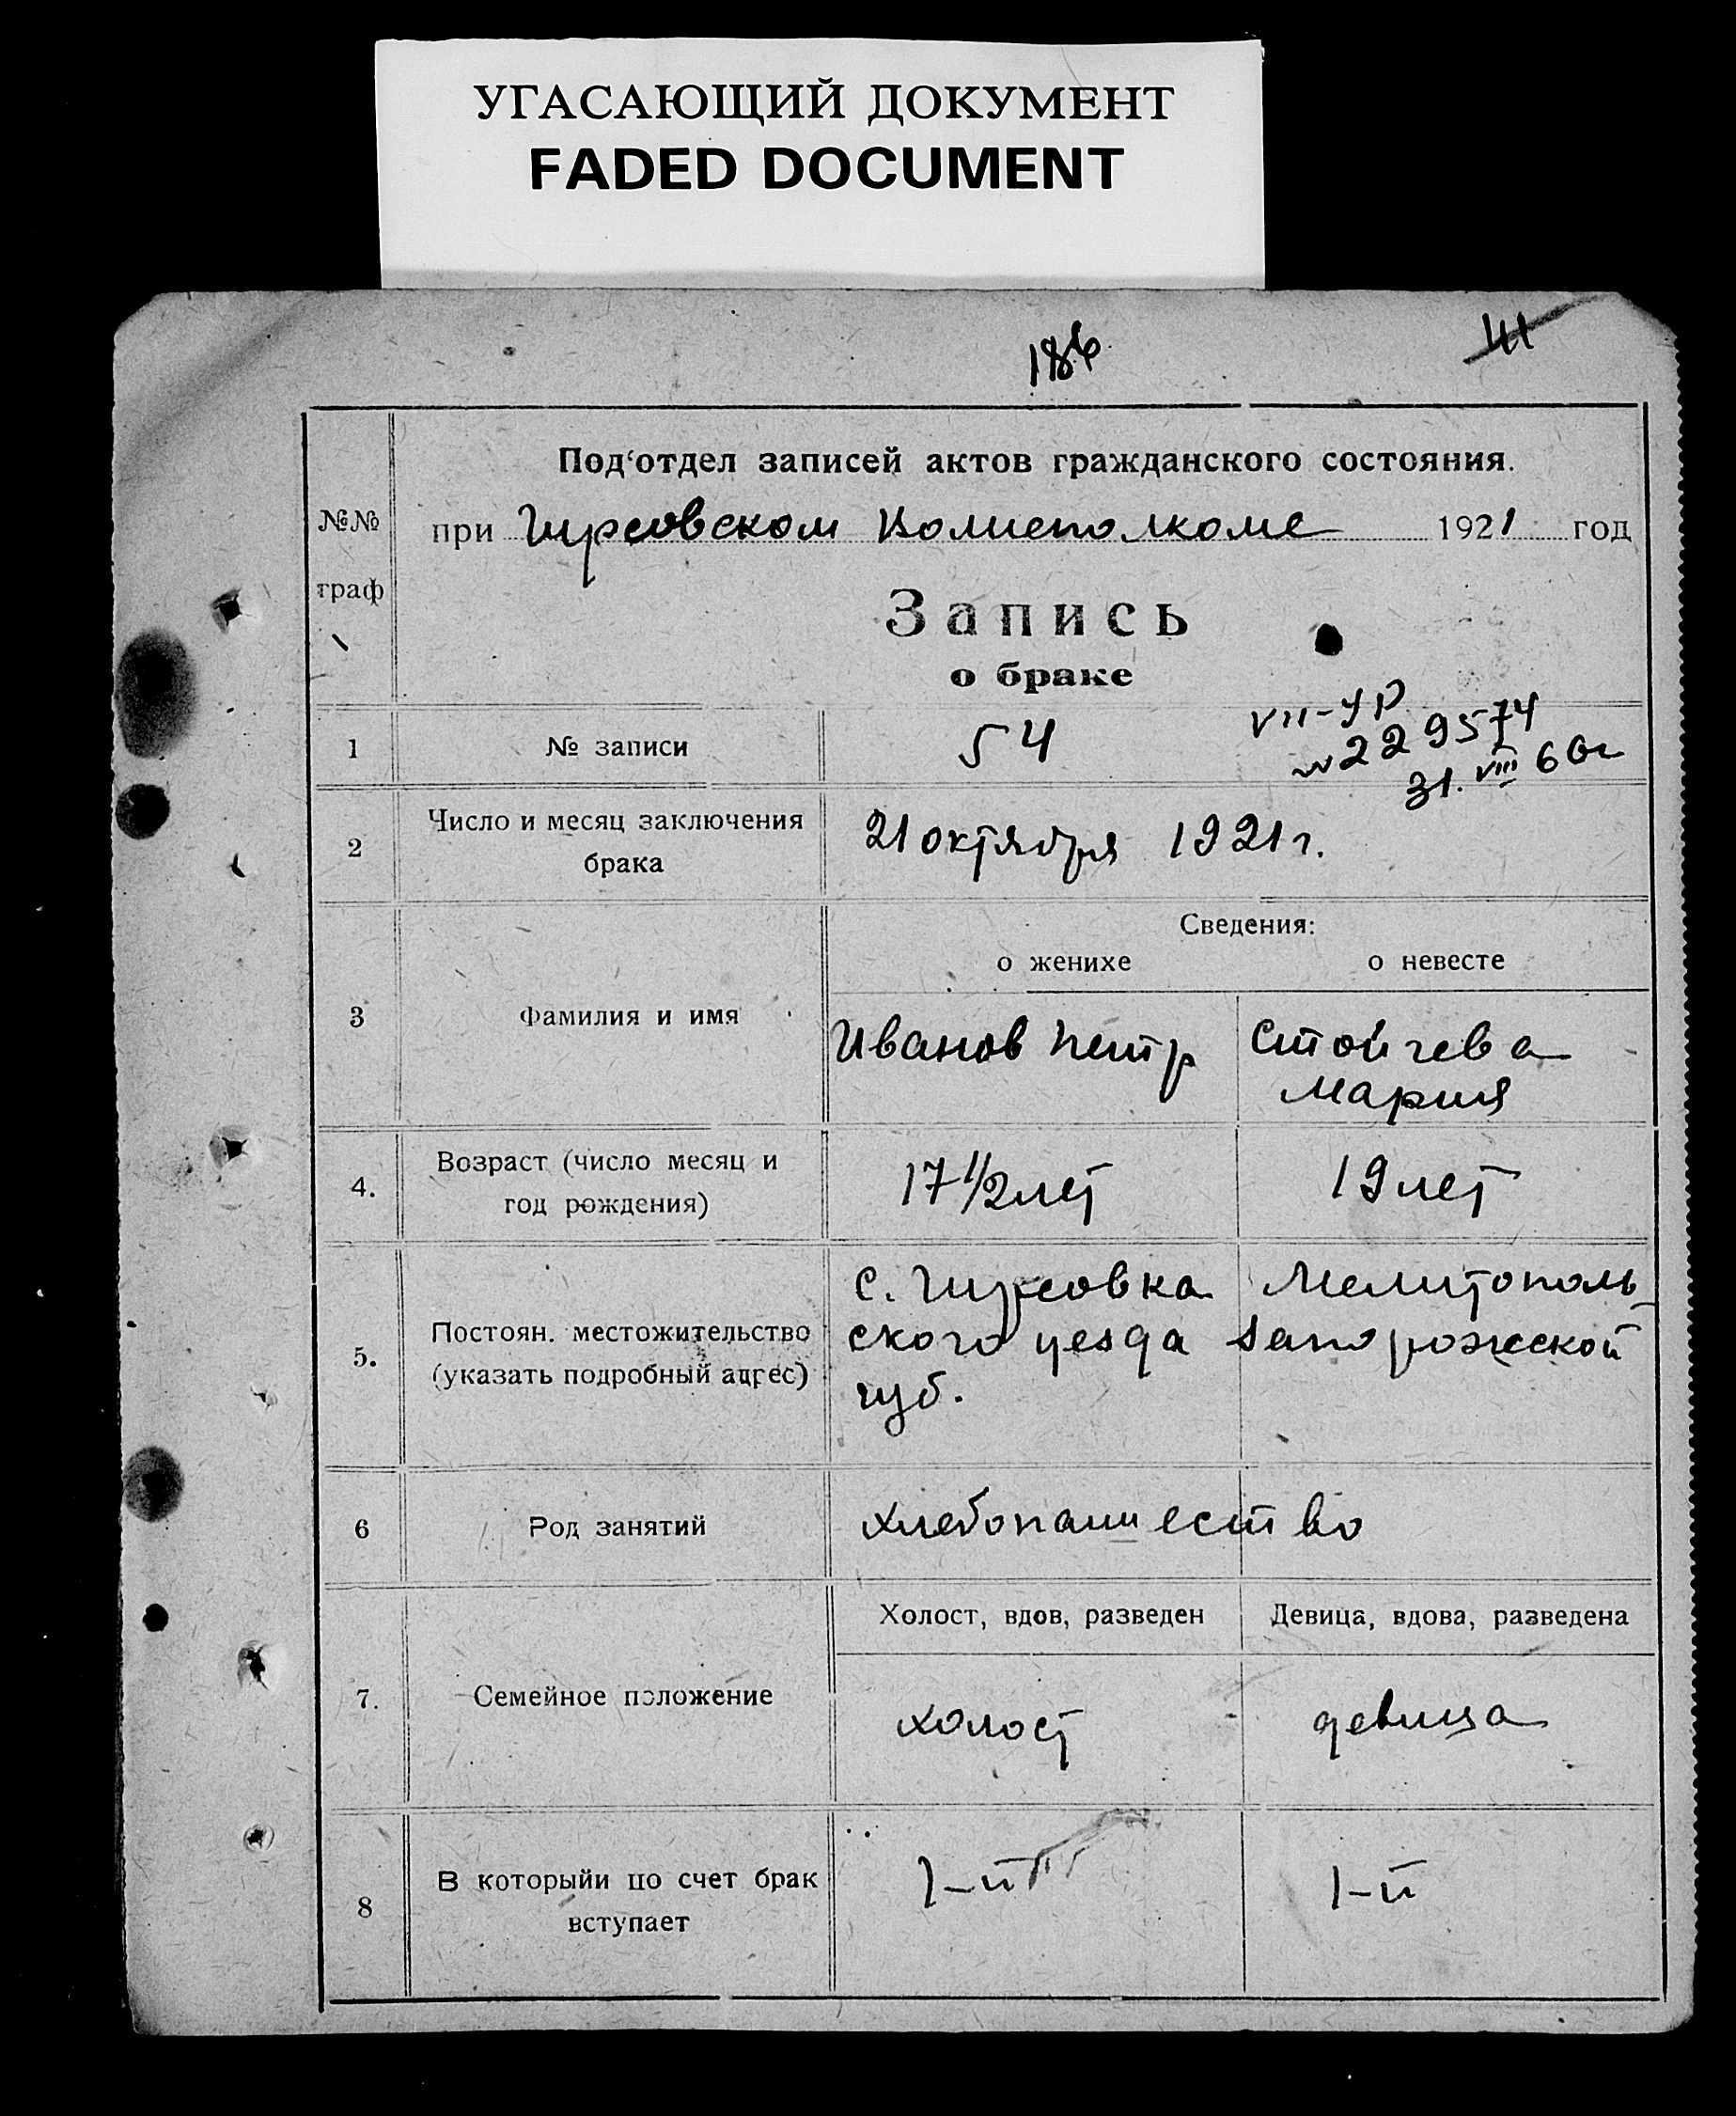 УГАСАЮЩИЙ ДОКУМЕНТ
FADED DOCUMENT
186
41
Под‘отдел записей актов гражданского состояния.
№№
граф
при Гирсовском Волисполкоме 1921 год
Запись
о браке
VII-УР
№ 229574
31.VIII 60г
1 № записи 54
2 Число и месяц заключения
брака
21 октября 1921 г.
Сведения:
о женихе о невесте
3 Фамилия и имя
Иванов Петр Стойчева
Мария
4. Возраст (число месяц и
год рождения)
17 1/2 лет 19 лет
5. Постоян. местожительство
(указать подробный адрес)
с. Гирсовка Мелитополь-
ского уезда Запорожской
губ.
6 Род занятий хлебопашество
Холост, вдов, разведен Девица, вдова, разведена
7. Семейное положение
холост девица
8 В которыйи по счет брак
вступает
1-й 1-й